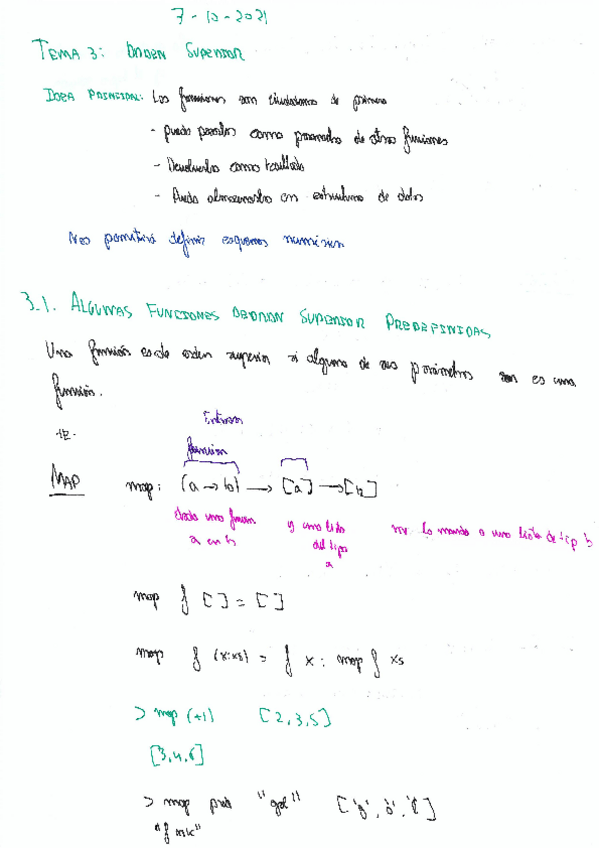 7-12-2021
TEMA 3: ORDEN SUPERIOR
IDEA PRINCIPAL: Las funciones son ciudadanos de primera
- puedo pasarlos como parametro de otras funciones
- Devolverlas como resultado
- Puedo almacenarlos en estructuras de datos
Nos permitirá definir esquemas
3.1. ALGUNAS FUNCIONES DE ORDEN SUPERIOR PREDEFINIDAS
Una función es de orden superior si alguno de sus parámetros es una
función.
función
MAP map: (a → b) → [a] → [b]
dada una función y una lista me lo manda a una lista de tip b
a en b del tipo
a
map f [] = []
map f (x:xs) = f x : map f xs
> map (+1) [2,3,5]
[3,4,6]
> map pred "gol" ['g','o','l']
"fnk"